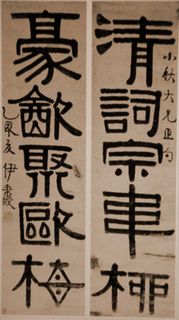 清詞宗韋柳
小秋大兄正句
豪㱃聚歐梅
乙亥夏 伊秉綬